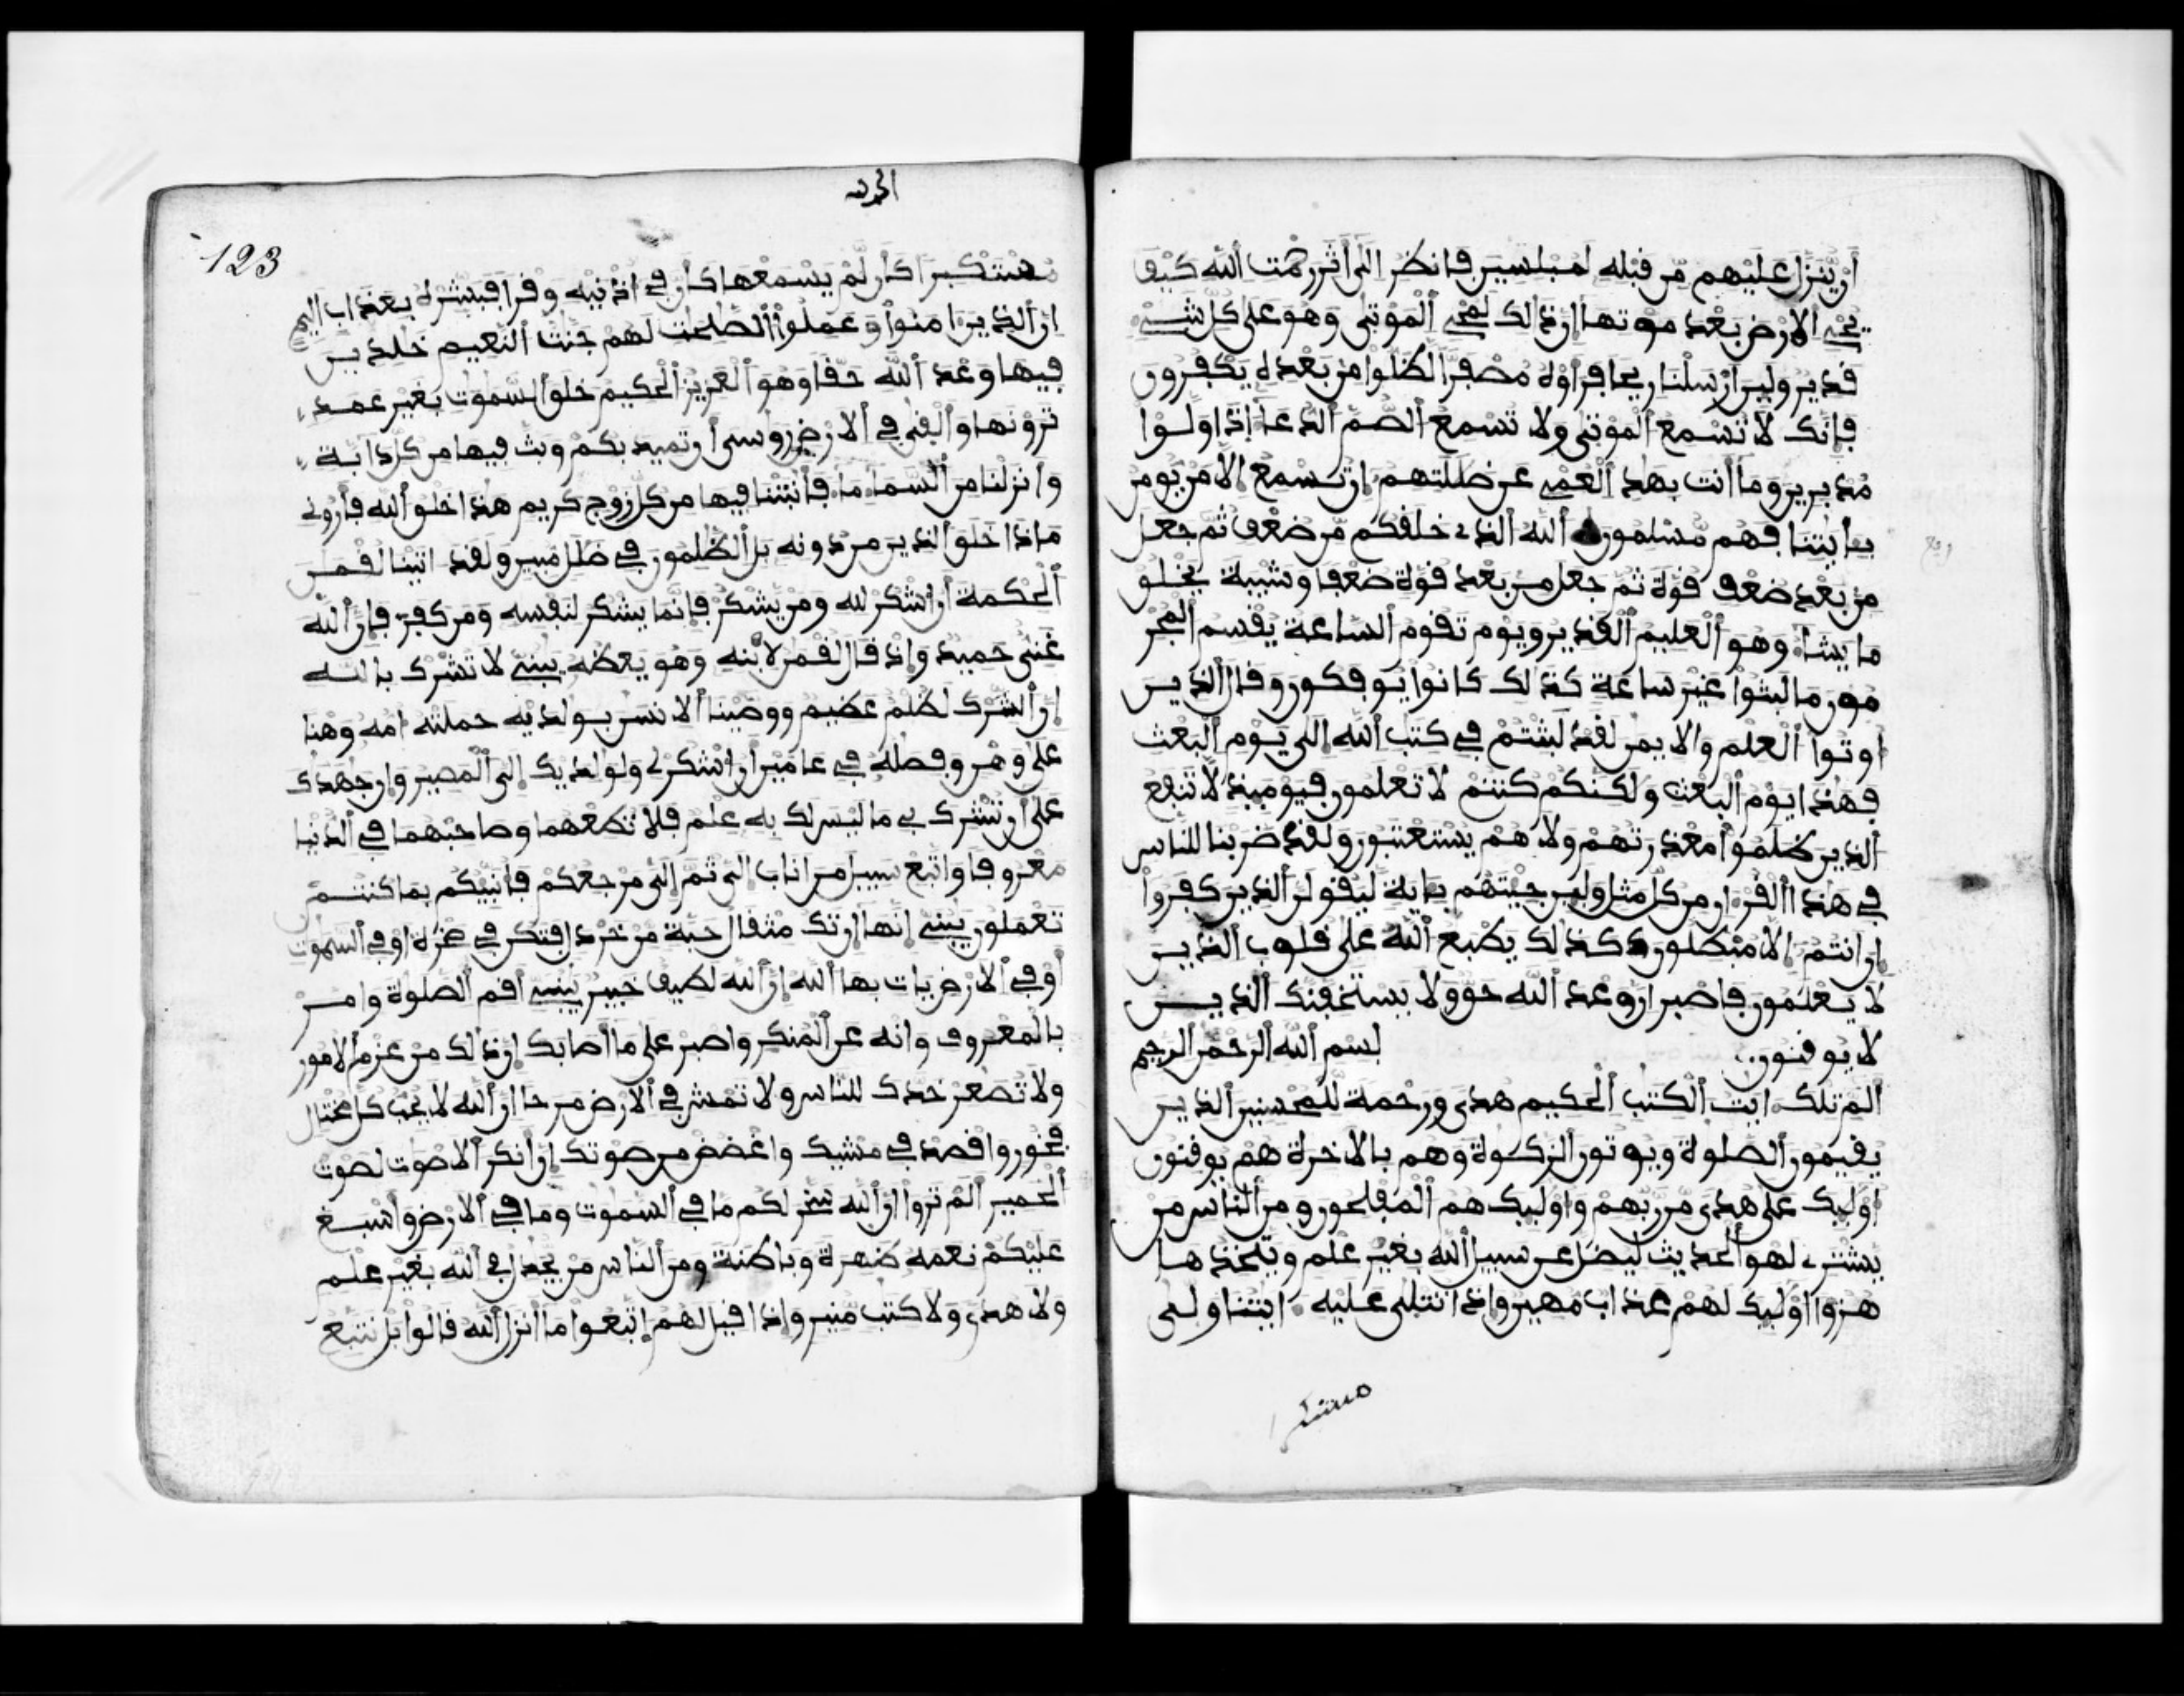 أن ينزل عليهم من قبله لمبلسين فانظر الى أثر رحمت الله كيف
يحي الارض بعد موتها ان ذلك لمحي الموتى وهو على كل شيء
قدير ولين ارسلنا ريحا فراوه مصفرا لظلوا من بعده يكفرون
فإنك لا تسمع الموتى ولا تسمع الصم الدعا إذا ولوا
مدبرين وما أنت بهد العمي عن ضللتهم ان تسمع الا من يومن
بايتنا فهم مسلمون الله الذي خلقكم من ضعف ثم جعل
من بعد ضعف قوة ثم جعل من بعد قوة ضعفا وشيبة يخلق
ما يشا وهو العليم القدير ويوم تقوم الساعة يقسم المجر
مون ما لبثوا غير ساعة كذلك كانوا يوفكون وقال الذين
اوتوا العلم والايمن لقد لبثتم في كتب الله الى يوم البعث
فهذا يوم البعث ولكنكم كنتم لا تعلمون فيوميذ لا تنفع
الذين ظلموا معذرتهم ولا هم يستعتبون ولقد ضربنا للناس
في هذا القران من كل مثل ولين جيتهم باية ليقولن الذين كفروا
ان انتم الا مبطلون كذلك يطبع الله على قلوب الذين
لا يعلمون فاصبر ان وعد الله حق ولا يستخفنك الذين
لا يوقنون بسم الله الرحمن الرحيم
الم تلك ايت الكتب الحكيم هدى ورحمة للمحسنين الذين
يقيمون الصلوة ويوتون الزكوة وهم بالاخرة هم يوقنون
اوليك على هدى من ربهم واوليك هم المفلحون ومن الناس من
يشتري لهو الحديث ليضل عن سبيل الله بغير علم ويتخذها
هزوا اوليك لهم عذاب مهين واذا تتلى عليه ايتنا ولى
مستكبرا
ربع
الحمد لله
123
مستكبرا كأن لم يسمعها كأن في اذنيه وقرا فبشره بعذاب اليم
ان الذين امنوا وعملوا الصلحت لهم جنت النعيم خلدين
فيها وعد الله حقا وهو العزيز الحكيم خلق السموت بغير عمد
ترونها والقى في الارض روسي ان تميد بكم وبث فيها من كل دابة
وانزلنا من السما ما فأنبتنا فيها من كل زوج كريم هذا خلق الله فأروني
ماذا خلق الذين من دونه بل الظلمون في ضلل مبين ولقد اتينا لقمن
الحكمة ان اشكر لله ومن يشكر فإنما يشكر لنفسه ومن كفر فإن الله
غني حميد واذ قال لقمن لابنه وهو يعظه يبني لا تشرك بالله
ان الشرك لظلم عظيم ووصينا الانسن بولديه حملته امه وهنا
على وهن وفصله في عامين ان اشكر لي ولولديك الي المصير وان جهدك
على أن تشرك بي ما ليس لك به علم فلا تطعهما وصاحبهما في الدنيا
معروفا واتبع سبيل من اناب الي ثم الي مرجعكم فأنبيكم بما كنتم
تعملون يبني انها ان تك مثقال حبة من خردل فتكن في صخرة او في السموت
أو في الارض يات بها الله ان الله لطيف خبير يبني أقم الصلوة وامر
بالمعروف وانه عن المنكر واصبر على ما اصابك ان ذلك من عزم الامور
ولا تصعر خدك للناس ولا تمش في الارض مرحا ان الله لا يحب كل مختال
فخور واقصد في مشيك واغضض من صوتك ان انكر الاصوت لصوت
الحمير الم تروا ان الله سخر لكم ما في السموت وما في الارض واسبغ
عليكم نعمه ظهرة وباطنة ومن الناس من يجدل في الله بغير علم
ولا هدى ولا كتب منير واذا قيل لهم اتبعوا ما انزل الله قالوا بل نتبع